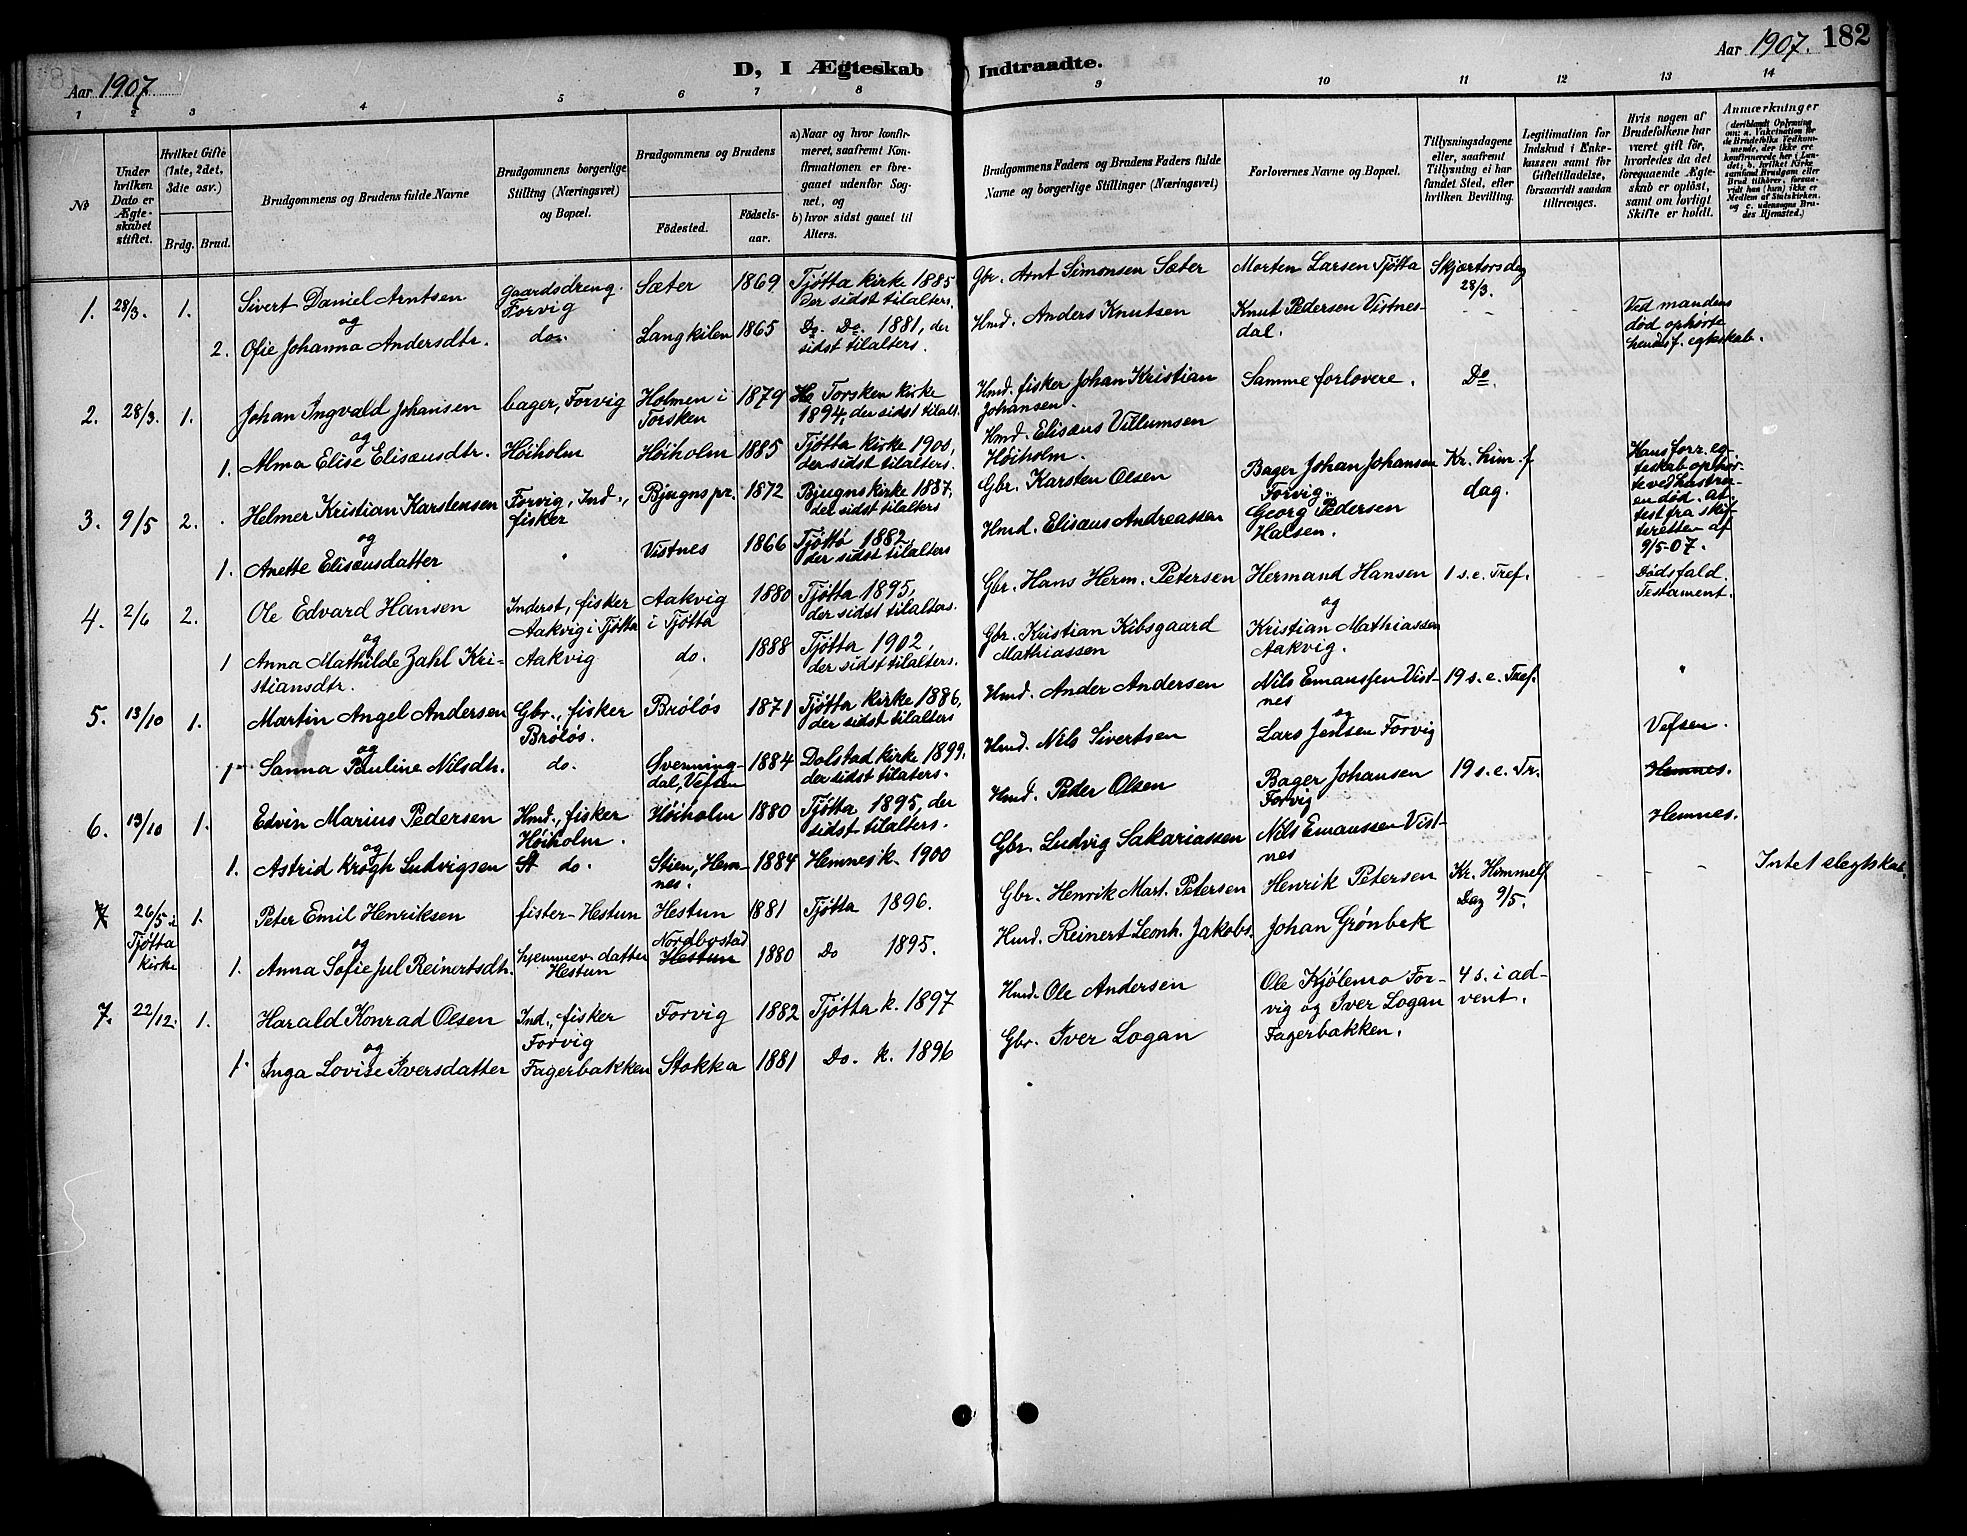 Aar 1907
D, I Ægteskab Indtraadte.
Aar 1907. 182
1 2 3 4 5 6 7 8 9 10 11 12 13 14
No
Under hvilken Dato er Ægteskabet stiftet.
Hvilket Gifte (1ste, 2det, 3die osv.)
Brdg. Brud.
Brudgommens og Brudens fulde Navne
Brudgommens borgerlige Stilling (Næringsvei) og Bopæl.
Brudgommens og Brudens
Födested.
Födselsaar.
a) Naar og hvor konfirmeret, saafremt Konfirmationen er foregaaet udenfor Sognet, og
b) hvor sidst gaaet til Alters.
Brudgommens Faders og Brudens Faders fulde Navne og borgerlige Stillinger (Næringsvei)
Forlovernes Navne og Bopæl.
Tillysningsdagene eller, saafremt Tillysning ei har fundet Sted, efter hvilken Bevilling.
Legitimation for Indskud i Enkekassen samt for Giftetilladelse, forsaavidt saadan tiltrænges.
Hvis nogen af Brudefolkene har været gift før, hvorledes da det foregaaende Ægteskab er opløst, samt om lovligt Skifte er holdt.
Anmærkninger (deriblandt Oplysning om: a. Vakcination for de Brudefolks Vedkommende, der ikke ere konfirmerede her i Landet; b. hvilket Kirkesamfund Brudgom eller Brud tilhører, forsaavidt han (hun) ikke er Medlem af Statskirken, og c. udensogns Brudes Hjemsted.)
1. 28/3. 1. Sivert Daniel Arntsen Gaardsdreng. Forvig Sæter 1869 Tjøtta kirke 1885 der sidst tilalters. Gbr. Arnt Simonsen Sæter Morten Larsen Tjøtta Skjærtorsdag 28/3.
og
2. Ofie Johanna Andersdtr. do. Langkilen 1865 Do. Do. 1881, der sidst tilalters. Hmd. Anders Knutsen Knut Pedersen Vistnesdal. - - Ved mandens død ophørte hendes f. egteskab.
2. 28/3. 1. Johan Ingvald Johansen bager, Forvig Holmen i Torsken 1879 Torsken kirke 1894, der sidst tilalt. Hmd. fisker Johan Kristian Johansen. Samme forlovere. Do.
og
1. Alma Elise Elisæusdtr. Høiholm Høiholm 1885 Tjøtta kirke 1900, der sidst tilalters. Hmd. Elisæus Villumsen Høiholm.
3. 9/5 2. Helmer Kristian Karstensen Forvig, Ind., fisker Bjugns pr. 1872 Bjugns kirke 1887, der sidst tilalters Gbr. Karsten Olsen Bager Johan Johansen Forvig. Kr. him.f dag. Hans forr. egteskab ophørte ved hustruen død. Attest fra skifteretten af 9/5-07.
og
1. Anette Elisæusdatter " Vistnes 1866 Tjøtta 1882, der sidst tilalters Hmd. Elisæus Andreassen Georg Pedersen Halsen.
4. 2/6 2. Ole Edvard Hansen Inderst, fisker Aakvig i Tjøtta Aakvig i Tjøtta 1880 Tjøtta 1895, der sidst tilalters. Gbr. Hans Herm. Petersen Hermand Hansen 1 s. e. Tref. Dødsfald. Testament.
og
1 Anna Mathilde Zahl Kristiansdtr. Aakvig do. 1888 Tjøtta 1902, der sidst tilalters. Gbr. Kristian Kibsgaard Mathiassen og Kristian Mathiassen Aakvig.
5. 13/10 1. Martin Angel Andersen Gbr., fisker Brøløs. Brøløs 1871 Tjøtta kirke 1886, der sidst tilalters Hmd. Ander Andersen Nils Emaussen Vistnes 19 s. e. Tref. "
og
1 Sanna Pauline Nilsdtr. do. Svenningdal, Vefsen 1884 Dolstad kirke 1899, der sidst tilaters. Hmd. Nils Sivertsen og Lars Jensen Forvig Vefsen.
6. 13/10 1. Edvin Marius Pedersen Hmd., fisker Høiholm. Høiholm 1880 Tjøtta 1895, der sidst tilalters. Hmd. Peder Olsen Bager Johansen Forvig 19 s. e. Tr. Hemnes.
og
1. Astrid Krogh Ludvigsen St do. Stien, Hemnes. 1884 Hemnes k. 1900 Gbr. Ludvig Sakariassen Nils Emaussen Vistnes Hemnes.
7 26/5 i Tjøtta kirke 1. Peter Emil Henriksen fisker - Hestun Hestun 1881 Tjøtta 1896. Gbr. Henrik Mart. Petersen Henrik Petersen Kr. Himmelf Dag 9/5. - - Intet slegtskab.
og
1. Anna Sofie Jul Reinertsdtr. hjemmev. datter Hestun Nordbostad Hestun 1880 Do 1895. Hmd. Reinert Leonh. Jakobs. Johan Grønbek
7. 22/12. 1. Harald Konrad Olsen Ind., fisker Forvig Forvig 1882 Tjøtta k. 1897 Hmd. Ole Andersen Ole Kjølemo Forvig og Iver Logan Fagerbakken. 4 s. i advent.
og
1. Inga Lovise Iversdatter Fagerbakken Stokka 1881 Do. k. 1896 Gbr. Iver Logan